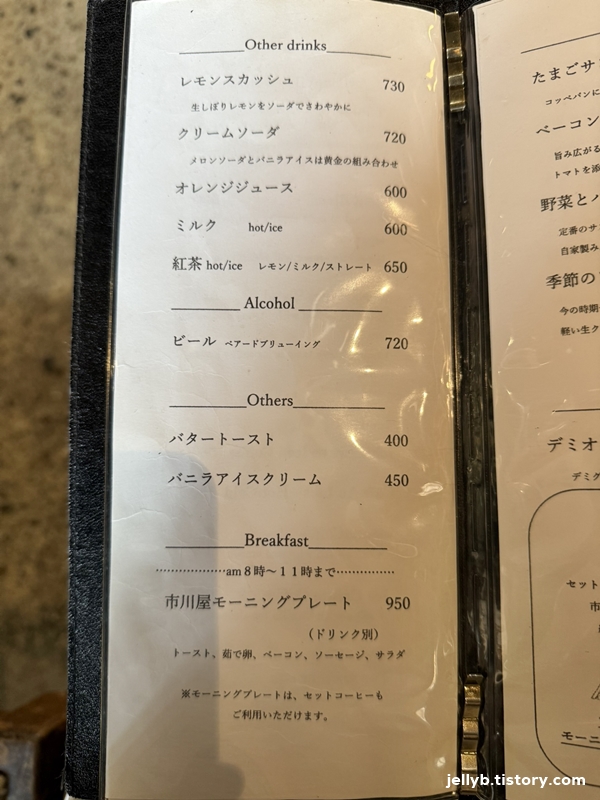 Other drinks
レモンスカッシュ 730
生しぼりレモンをソーダでさわやかに
クリームソーダ 720
メロンソーダとバニラアイスは黄金の組み合わせ
オレンジジュース 600
ミルク hot/ice 600
紅茶 hot/ice レモン/ミルク/ストレート 650
Alcohol
ビール ベアードブリューイング 720
Others
バタートースト 400
バニラアイスクリーム 450
Breakfast
am８時〜１１時まで
市川屋モーニングプレート 950
（ドリンク別）
トースト、茹で卵、ベーコン、ソーセージ、サラダ
※モーニングプレートは、セットコーヒーも
ご利用いただけます。
たまごサ
コッペパンに
ベーコン
旨み広がる
トマトを添
野菜とハ
定番のサ
自家製み
季節の
今の時期
軽い生ク
デミオ
デミグ
セット
市
モーニ
jellyb.tistory.com